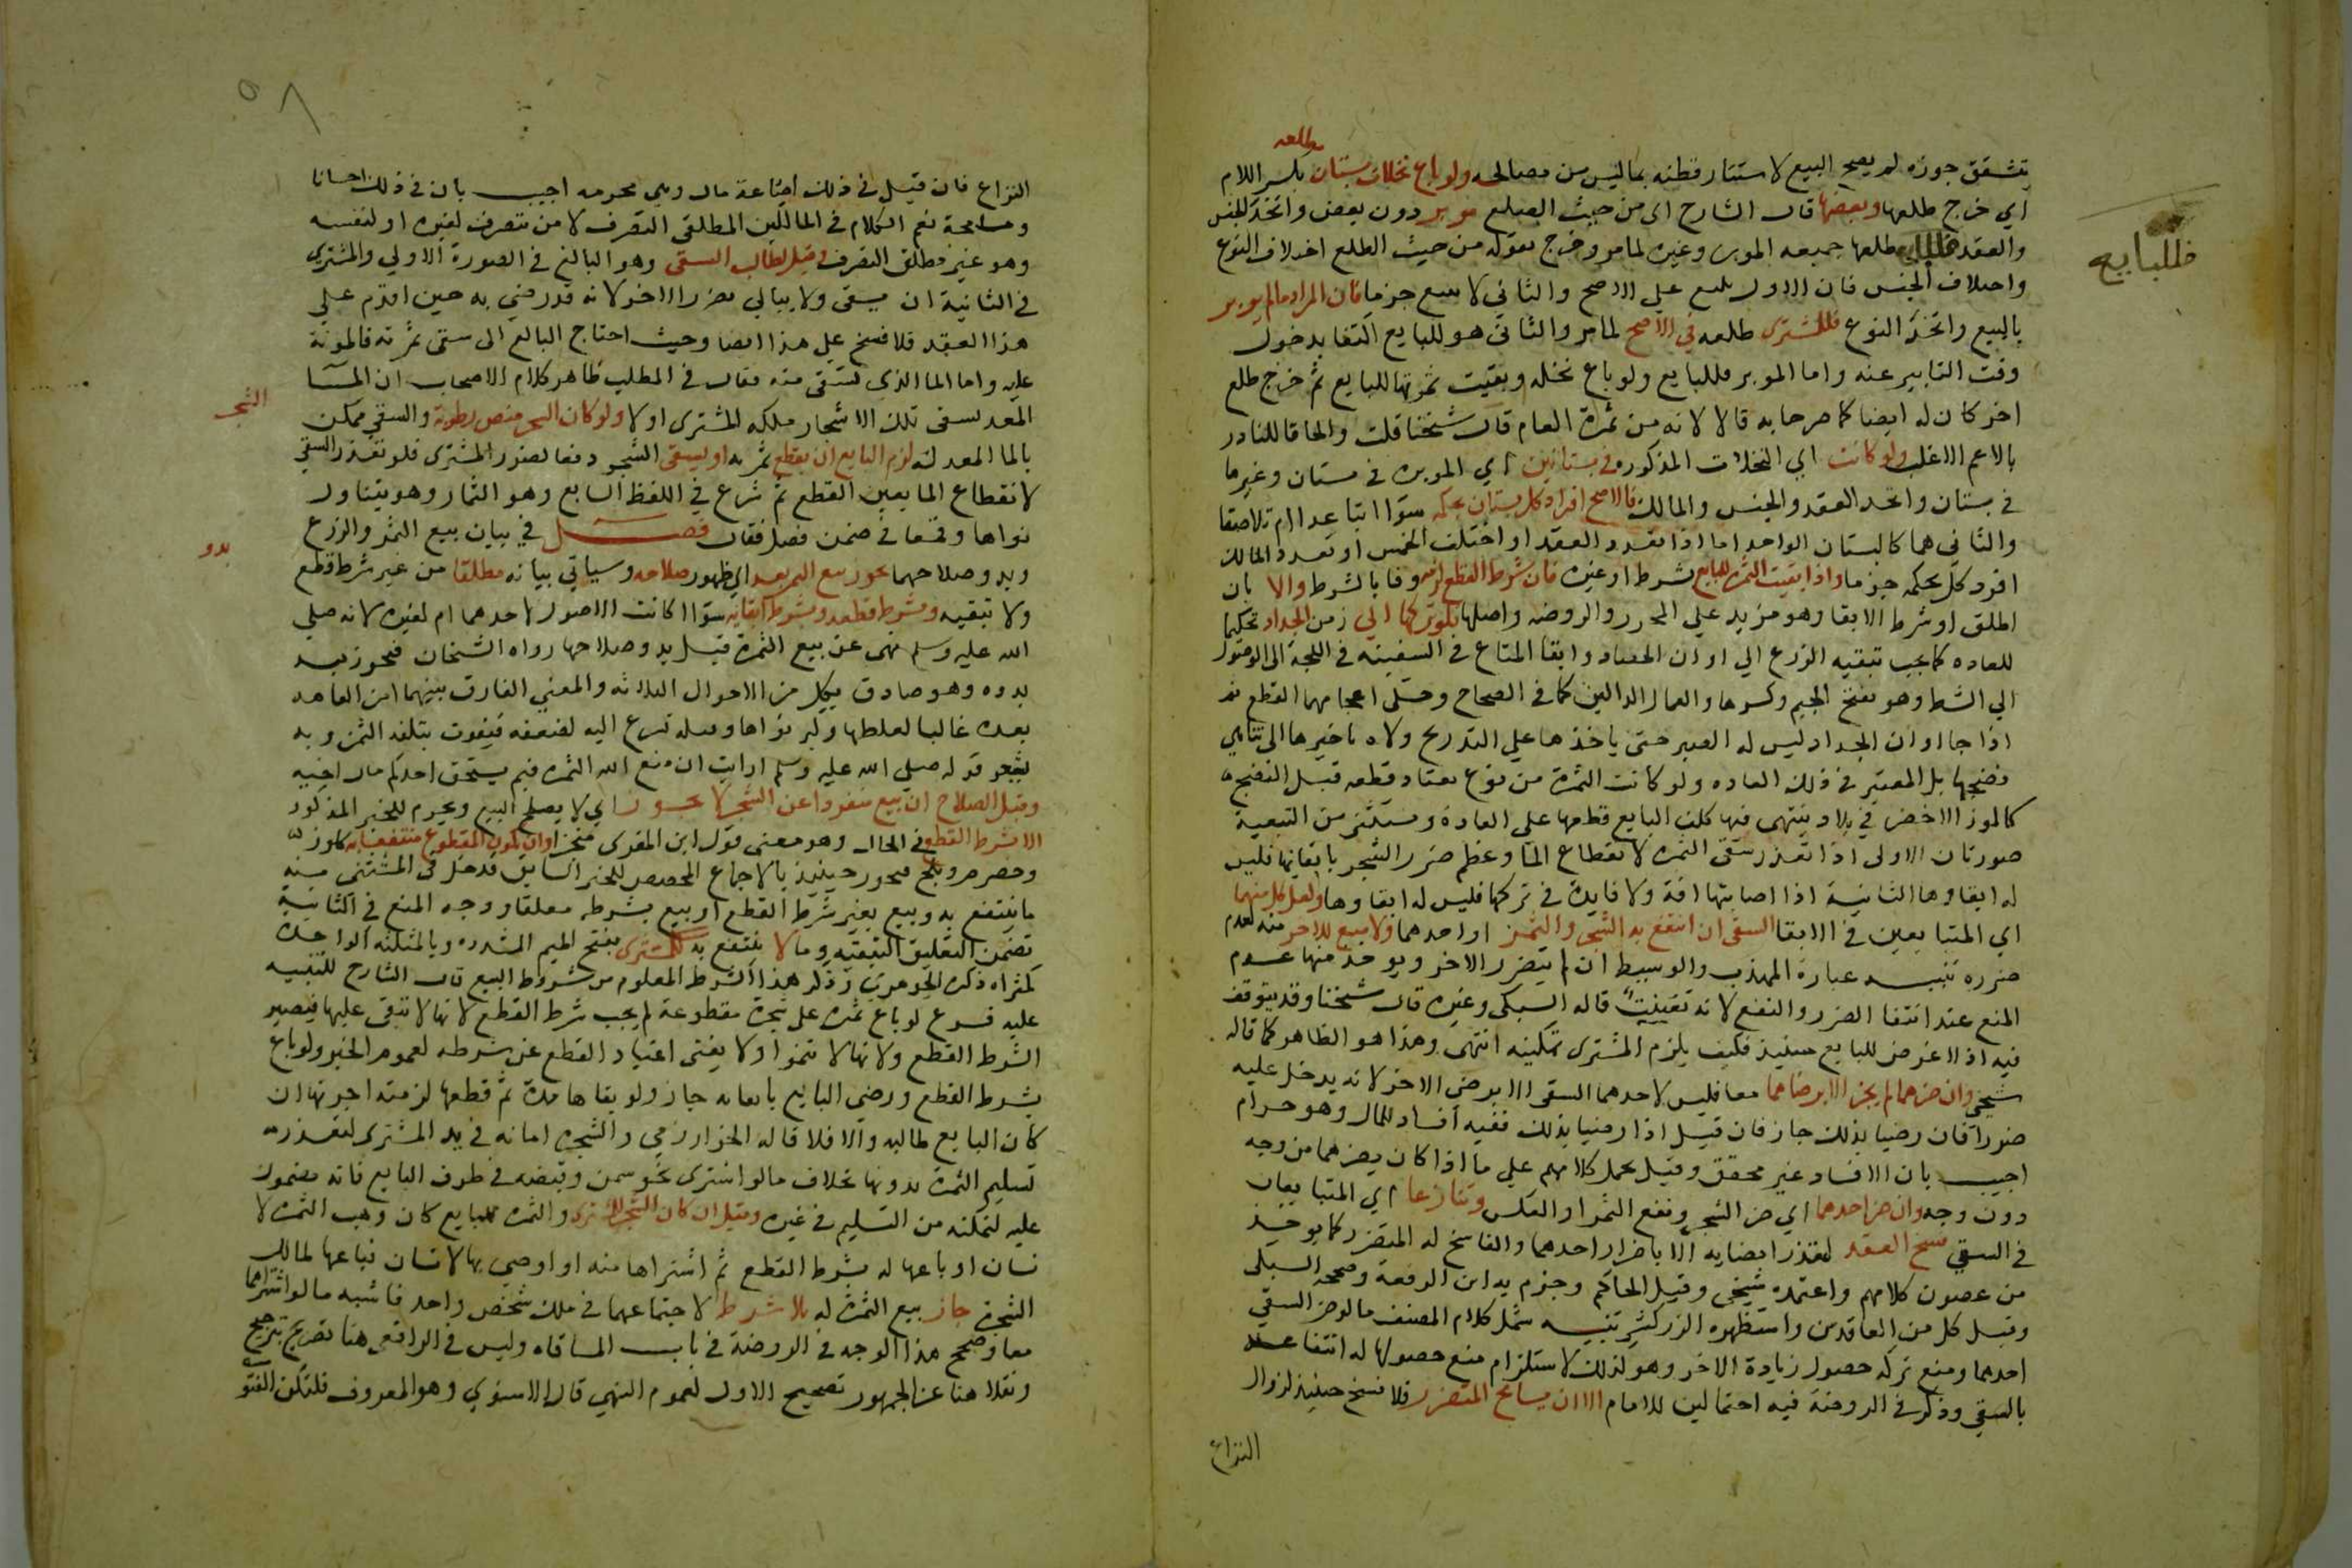 تتشقق جوزه لم يصح البيع لاستتار قطنه بما ليس من مصالحه ولو باع نخلات بستان مطلعه بكسر اللام
اي خرج طلعها وبعضها قال الشارح اي من حيث الطلع موبر دون بعض واتحد الجنس
والعقد فللبايع طلعها جميعه الموبر وغيره لما مر وخرج بقوله من حيث الطلع اختلاف النوع
فللبايع
واختلاف الجنس فان الاول يتبع على الاصح والثاني لا يتبع جزما فان افرد ما لم يوبر
بالبيع واتحد النوع فللمشتري طلعه في الاصح لما مر والثاني هو للبايع اكتفا بدخول
وقت التابير عنه واما الموبر فللبايع ولو باع نخله وبقيت ثمرتها للبايع ثم خرج طلع
اخر كان له ايضا كما صرحا به قالا لانه من ثمرة العام قال شيخنا قلت والحاقا للنادر
بالاعم الاغلب ولو كانت اي النخلات المذكوره في بستانين اي الموبره في بستان وغيرها
في بستان واتحد العقد والجنس والمالك فالاصح افراد كل بستان بحكمه سوا اتباعدا ام تلاصقا
والثاني هما كالبستان الواحد اما اذا تعدد العقد او اختلف الجنس او تعدد المالك
افرد كل بحكمه جزما واذا بقيت الثمره للبايع بشرط او غيره فان شرط القطع لزمه وفا بالشرط والا بان
اطلق او شرط الابقا وهو مزيد على المحرر والروضه واصلها فله تركها الى زمن الجداد تحكيما
للعاده كما يجب تبقيه الزرع الى اوان الحصاد وابقا المتاع في السفينه في اللجة الى الوصول
الى الشط وهو بفتح الجيم وكسرها واهمال الدالين كما في الصحاح وحكى اعجامهما القطع نعم
اذا جا اوان الجداد ليس له الصبر حتى ياخذها على التدريج ولا تاخيرها الى تناهي
نضجها بل المعتبر في ذلك العاده ولو كانت الثمرة من نوع يعتاد قطعه قبل النضج
كالموز الاخضر في بلاد ينتهي فيها كلف البايع قطعها على العادة ويستثنى من التبعية
صورتان الاولى اذا تعذر سقي الثمره لانقطاع الما وعظم ضرر الشجر بابقايها فليس
له ابقاوها الثانية اذا اصابتها افة ولا فايدة في تركها فليس له ابقاوها ولكل منهما
اي المتبايعين في الابقا السقي ان انتفع به الشجر والثمر او احدهما ولا منع للاخر منه لعدم
ضرره تنبيه عبارة المهذب والوسيط ان لم يتضرر الاخر ويوخذ منها عدم
المنع عند انتفا الضرر والنفع لانه تعنت قاله السبكي وغيره قال شيخنا وقد يتوقف
فيه اذ لا غرض للبايع حينيذ فكيف يلزم المشتري تمكينه انتهى وهذا هو الظاهر كما قاله
شيخي وان ضرهما لم يجز الا برضاهما معا فليس لاحدهما السقي الا برضى الاخر لانه يدخل عليه
ضررا فان رضيا بذلك جاز فان قيل اذا رضيا بذلك ففيه افساد للمال وهو حرام
اجيب بان الافساد غير محقق وقيل يحمل كلامهم على ما اذا كان يضرهما من وجه
دون وجه وان ضر احدهما اي ضر الشجر ونفع الثمر او العكس وتنازعا اي المتبايعان
في السقي فسخ العقد لتعذر امضايه الا باضرار احدهما والفاسخ له المتضرر كما يوخذ
من غضون كلامهم واعتمده شيخي وقيل الحاكم وجزم به ابن الرفعة وصححه السبكي
وقيل كل من العاقدين واستظهره الزركشي تنبيه شمل كلام المصنف ما لو ضر السقي
احدهما ومنع تركه حصول زيادة الاخر وهو لذلك لاستلزام منع حصولها له انتفاعه
بالسقي وذكر في الروضة فيه احتمالين للامام الا ان يسامح المتضرر فلا فسخ حينيذ لزوال
النزاع
النزاع فان قيل في ذلك اضاعة مال وهي محرمه اجيب بان في ذلك احسانا
ومسامحة نعم الكلام في المالكين المطلقي التصرف لا من يتصرف لغيره او لنفسه
وهو غير مطلق التصرف وقيل لطالب السقي وهو البايع في الصورة الاولى والمشتري
في الثانية ان يسقي ولا يبالي بضرر الاخر لانه قد رضي به حين اقدم على
هذا العقد فلا فسخ على هذا ايضا وحيث احتاج البايع الى سقي ثمرته فالمونة
عليه واما الما الذي يستقى منه فقال في المطلب ظاهر كلام الاصحاب ان الما
المعد لسقي تلك الاشجار ملكه المشتري او لا ولو كان الثمر يمتص رطوبة والسقي ممكن
الشجر
بالما المعد له لزم البايع ان يقطع ثمره او يسقي الشجر دفعا لضرر المشتري فلو تعذر السقي
لانقطاع الما يعين القطع ثم شرع في اللفظ السابع وهو الثمار وهو يتناول
نواها وقمعها في ضمن فصل فقال فصل في بيان بيع الثمر والزرع
وبدو صلاحهما يجوز بيع الثمر بعد اي ظهور صلاحه وسياتي بيانه مطلقا من غير شرط قطع
بدو
ولا تبقيه وبشرط قطعه وبشرط ابقايه سوا اكانت الاصول لاحدهما ام لغيره لانه صلى
الله عليه وسلم نهى عن بيع الثمرة قبل بدو صلاحها رواه الشيخان فيجوز بعد
بدوه وهو صادق بكل من الاحوال الثلاثه والمعنى الفارق بينهما امن العاهه
بعده غالبا لغلظها وكبر نواها وقبله تسرع اليه لضعفه فيفوت بتلفه الثمن وبه
يشعر قوله صلى الله عليه وسلم ارايت ان منع الله الثمره فبم يستحق احدكم مال اخيه
وقبل الصلاح ان بيع منفردا عن الشجر لا يجوز اي لا يصح البيع ويحرم للخبر المذكور
الا بشرط القطع في الحال وهو معنى قول ابن المقري منجزا وان يكون المقطوع منتفعا به كلوز
وحصرم وبلح فيجوز حينيذ بالاجماع المخصص للخبر السابق فدخل في المستثنى منه
ما ينتفع به وبيع بغير شرط القطع او بيع بشرطه معلقا ووجه المنع في الثانية
تضمن التعليق التبقيه وما لا ينتفع به ككمثرى بفتح الميم المشدده وبالمثلثه الواحدة
كمثراه ذكره الجوهري وذكر هذا الشرط المعلوم من شروط البيع قال الشارح للتنبيه
عليه فرع لو باع ثمره على شجرة مقطوعة لم يجب شرط القطع لانها لا تبقى عليها فيصير
الشرط القطع ولانها لا تنمو ولا يغني اعتياد القطع عن شرطه لعموم الخبر ولو باع
بشرط القطع ورضي البايع بابقايه جاز ولو بقاها مدة ثم قطعها لزمته اجرتها ان
كان البايع طالبه والا فلا قاله الخوارزمي والشجره امانه في يد المشتري لتعذر
تسليم الثمرة بدونها بخلاف ما لو اشترى نحو سمن وقبضه في ظرف البايع فانه مضمون
عليه لتمكنه من التسليم في غيره وقيل ان كان الشجر للمشتري والثمره للبايع كان وهب الثمره لا
نسان او باعها له بشرط القطع ثم اشتراها منه او اوصى بها لانسان فباعها لمالك
الشجرة جاز بيع الثمرة له بلا شرط لاجتماعهما في ملك شخص واحد فاشبه ما لو اشتراهما
معا وصحح هذا الوجه في الروضة في باب المساقاه وليس في الرافعي هنا تصريح بترجيح
ونقلا هنا عن الجمهور تصحيح الاول لعموم النهي قال الاسنوي وهو المعروف فلتكن الفتوى